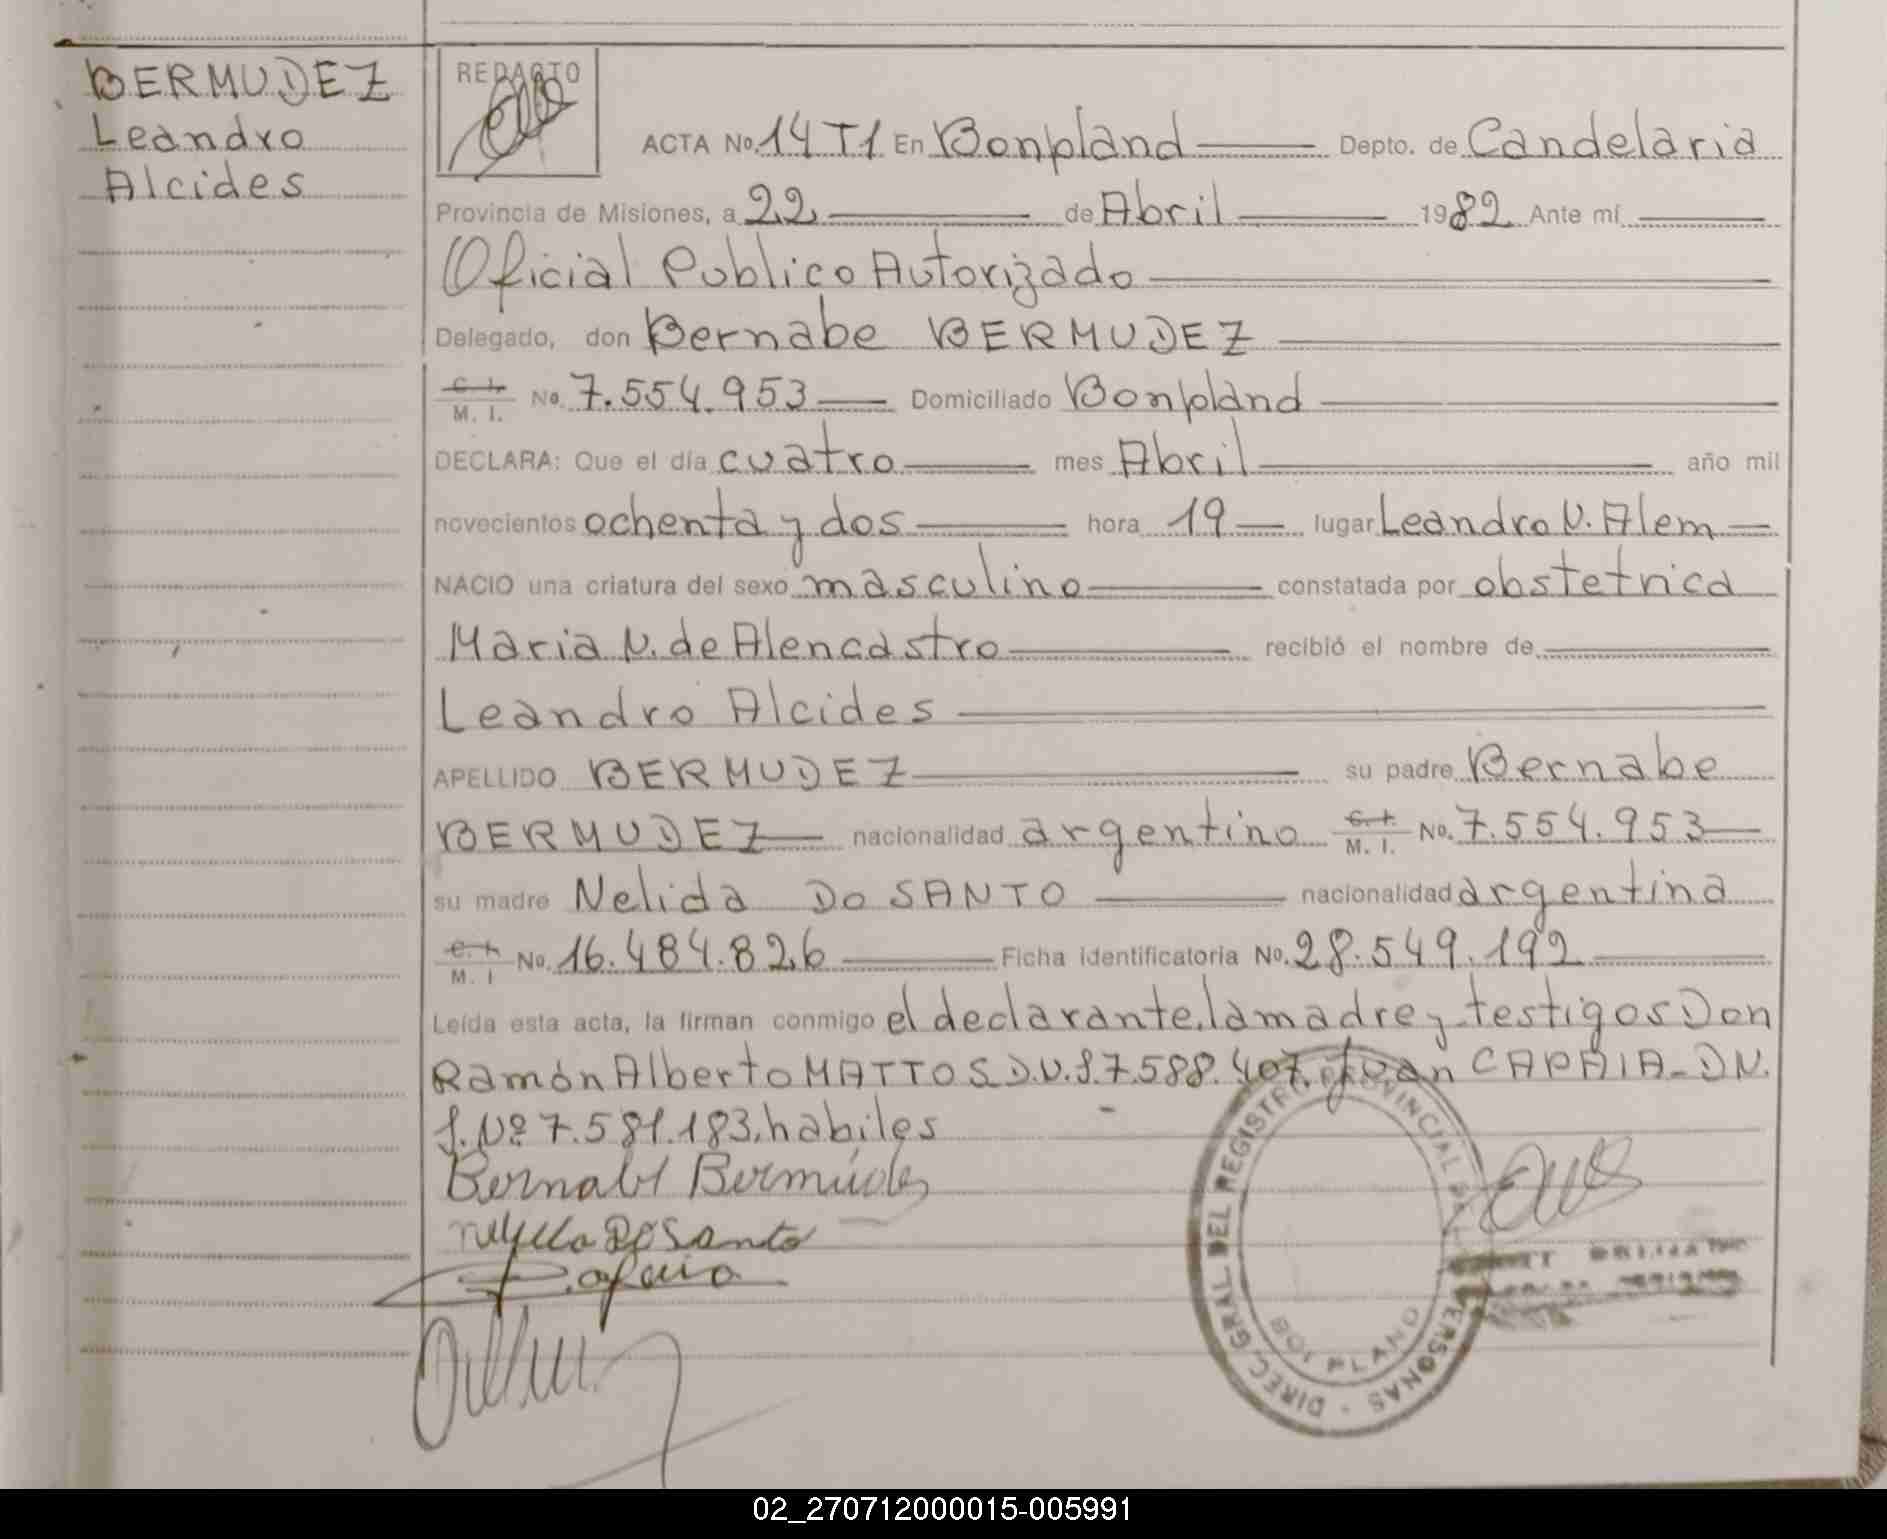 BERMUDEZ
Leandro
Alcides
REDACTO
ACTA No. 14 T1 En Bonpland Depto. de Candelaria
Provincia de Misiones, a 22 de Abril 1982 Ante mí
Oficial Publico Autorizado
Delegado, don Bernabe BERMUDEZ
C. I. M. I. No. 7.554.953 Domiciliado Bonpland
DECLARA: Que el día cuatro mes Abril año mil
novecientos ochenta y dos hora 19 lugar Leandro N. Alem
NACIO una criatura del sexo masculino constatada por obstetrica
Maria N. de Alencastro recibió el nombre de
Leandro Alcides
APELLIDO BERMUDEZ su padre Bernabe
BERMUDEZ nacionalidad argentino C. I. M. I. No. 7.554.953
su madre Nelida DO SANTO nacionalidad argentina
C. I. M. I No. 16.484.826 Ficha identificatoria No. 28.549.192
Leída esta acta, la firman conmigo el declarante, la madre y testigos Don
Ramón Alberto MATTOS D.N.I. 7.588.407. Juan CAPAIA - DN.
I. Nº 7.581.183, habiles
Bernabe Bermúdez
Do Santo
DIREC. GRAL. DEL REGISTRO PROVINCIAL PERSONAS
BONPLAND
02_270712000015-005991